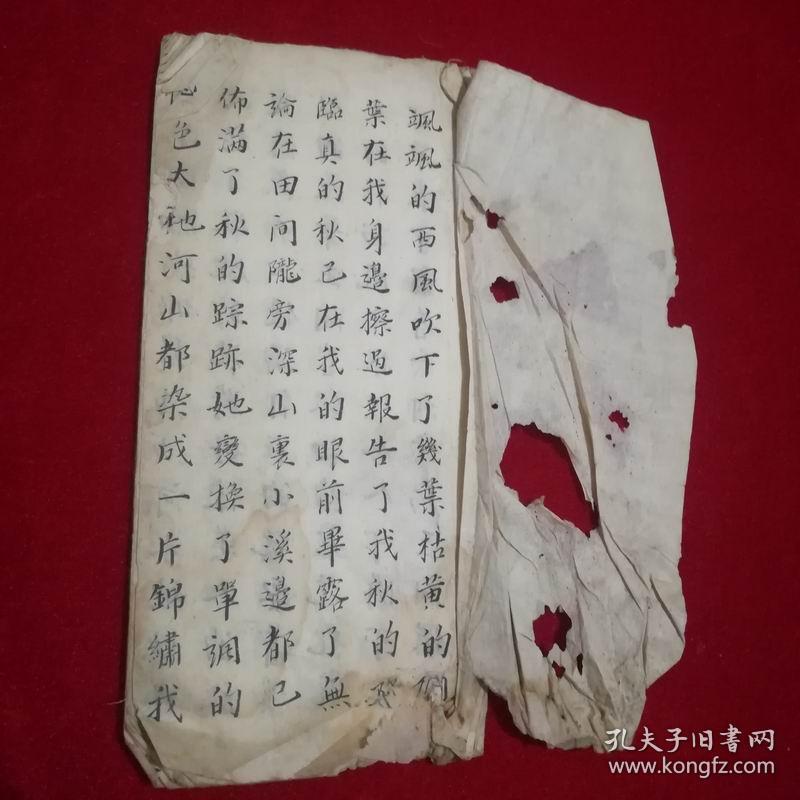 颯颯的西風吹下了幾葉枯黃的
葉在我身邊擦過報告了我秋的
臨真的秋已在我的眼前畢露了無
論在田间隴旁深山裏小溪邊都已
佈滿了秋的踪跡她變換了單調的
色大地河山都染成一片錦繡我
孔夫子旧書网
www.kongfz.com